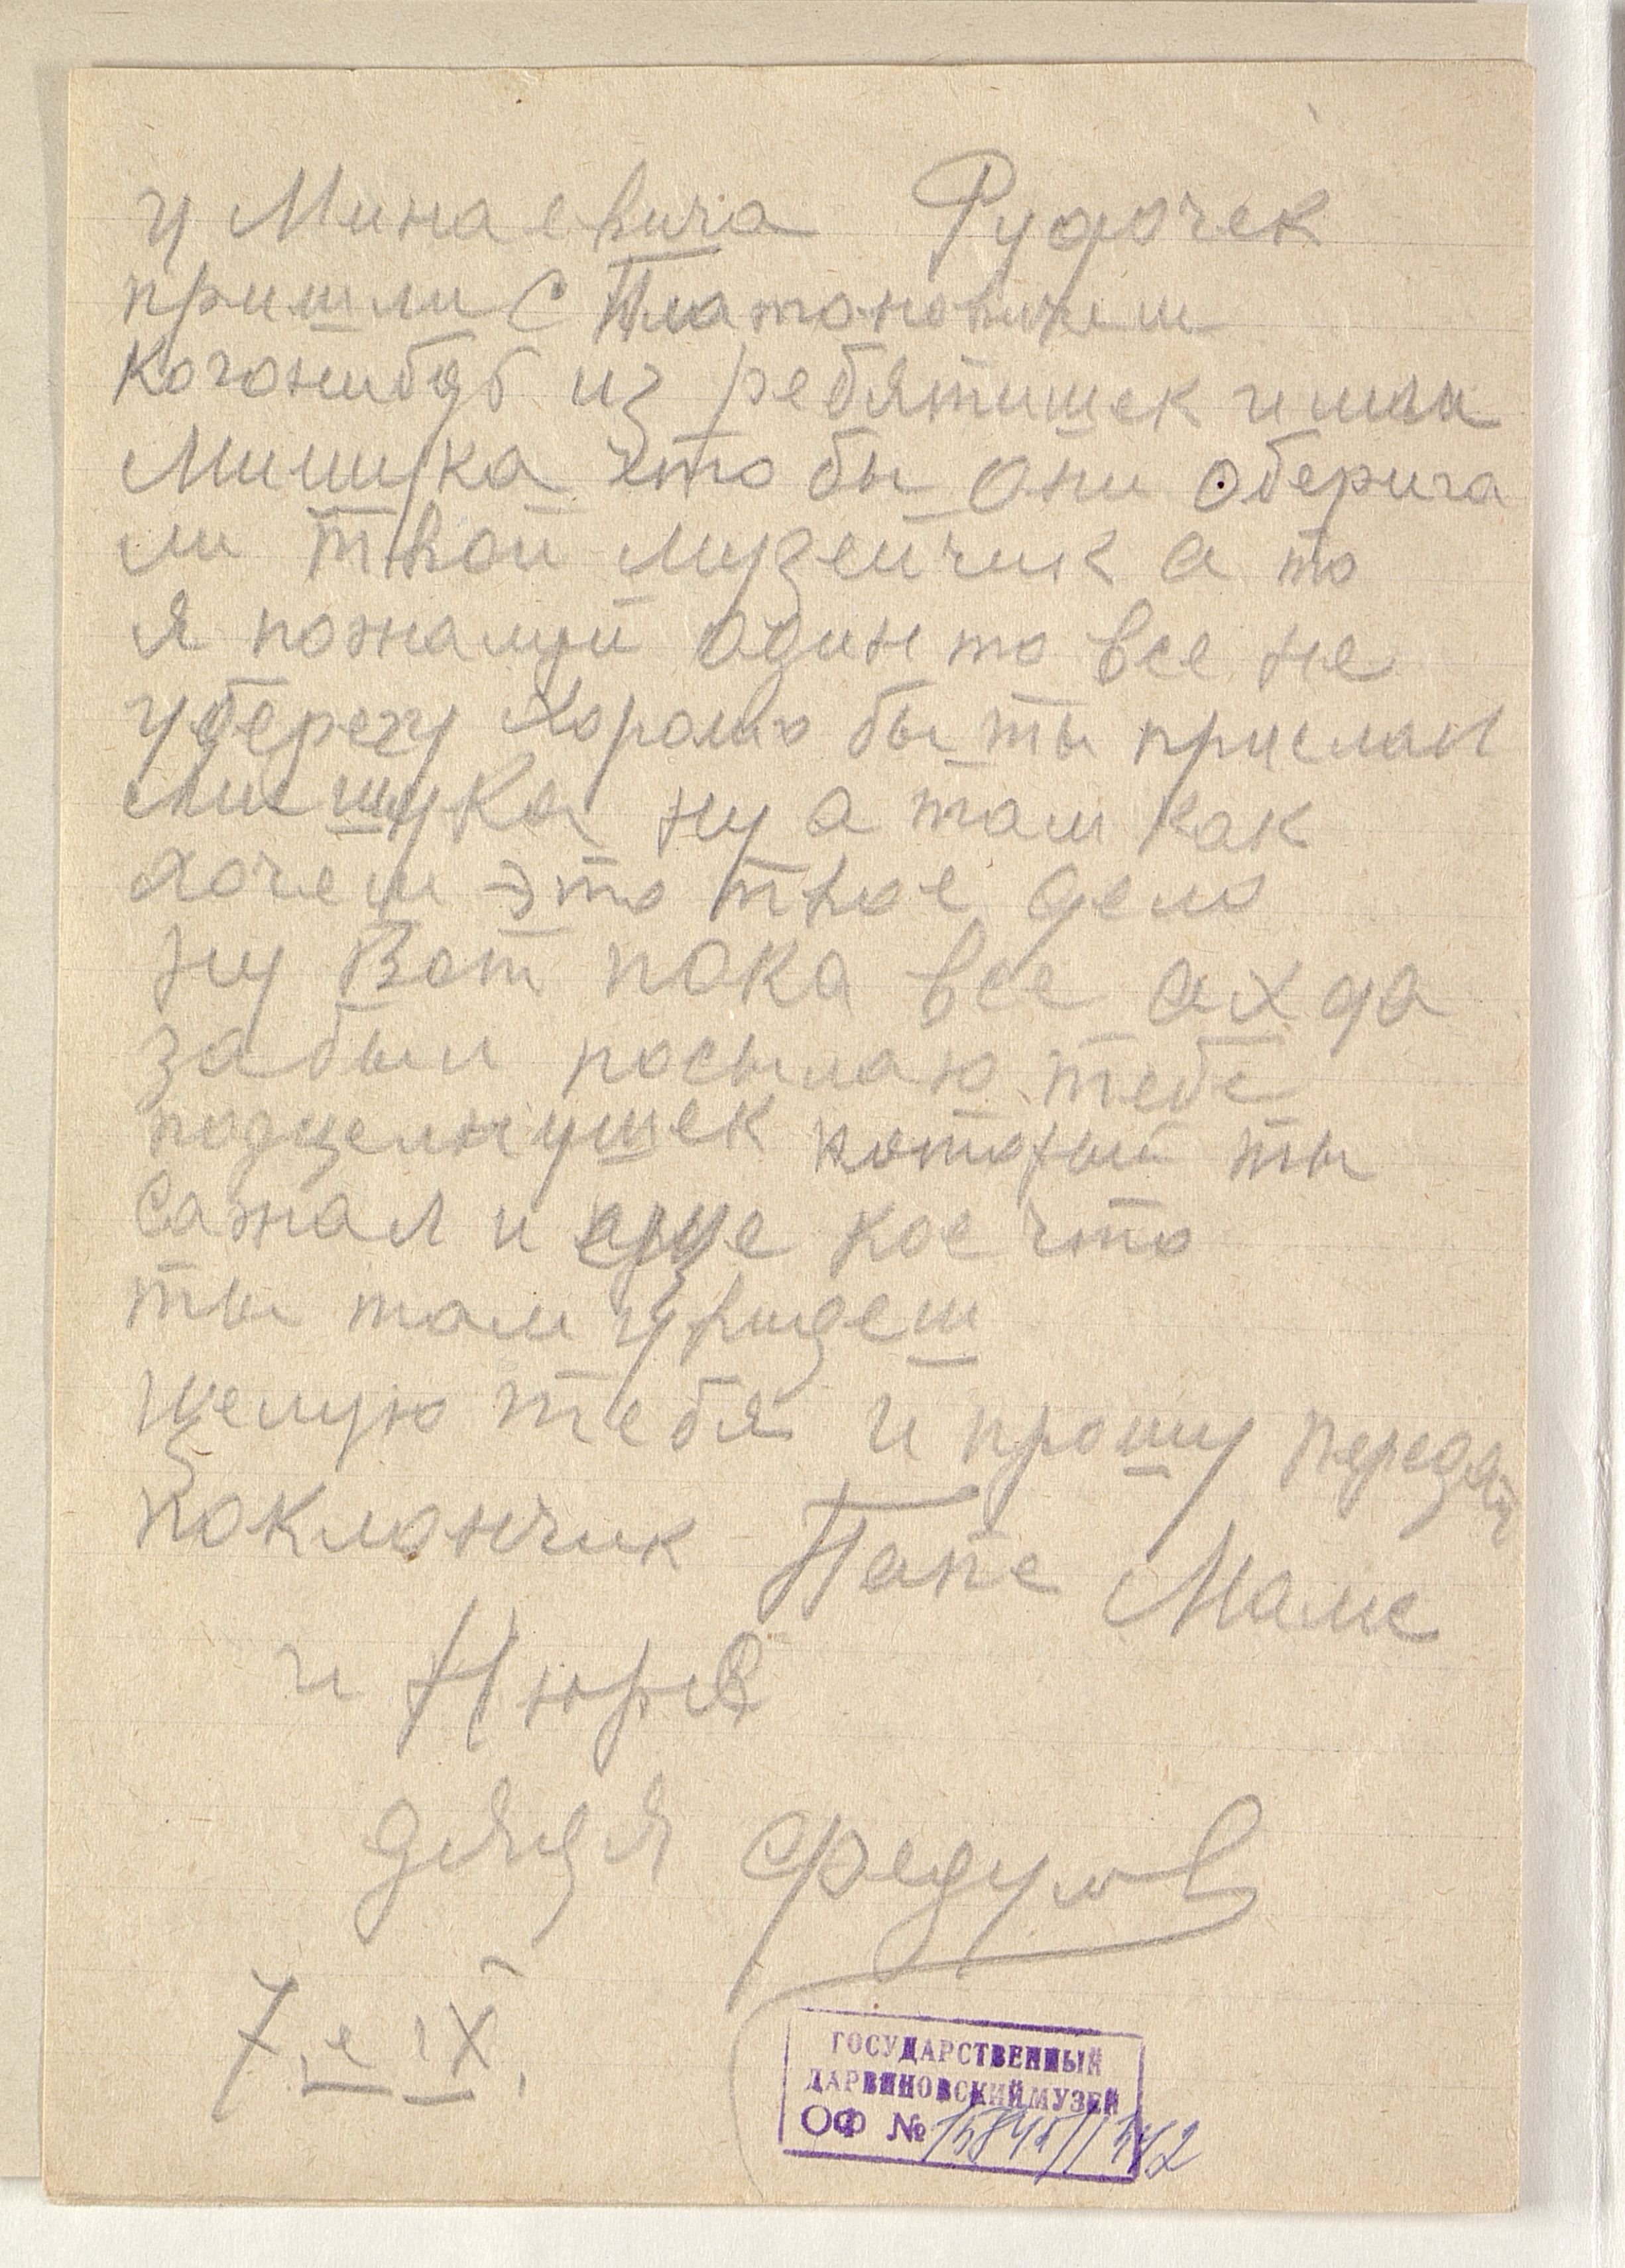 у Минаевича Рудочек
пришли с Платановичем
когонибудь из ребятишек или
Мишука что бы они оберига
ли твой музейчик а то
я пожалуй один то все не
уберегу хорошо бы ты прислал
мишука ну а там как
хочеш это твое дело
ну Вот пока все ах да
забыл посылаю тебе
подцелнушек который ты
сажал и еще кое что
ты там увидеш
целую тебя и прошу передат
поклончик Папе Маме
и Нюре
дядя Федулов
7 е IX.
ГОСУДАРСТВЕННЫЙ
ДАРВИНОВСКИЙ МУЗЕЙ
ОФ №